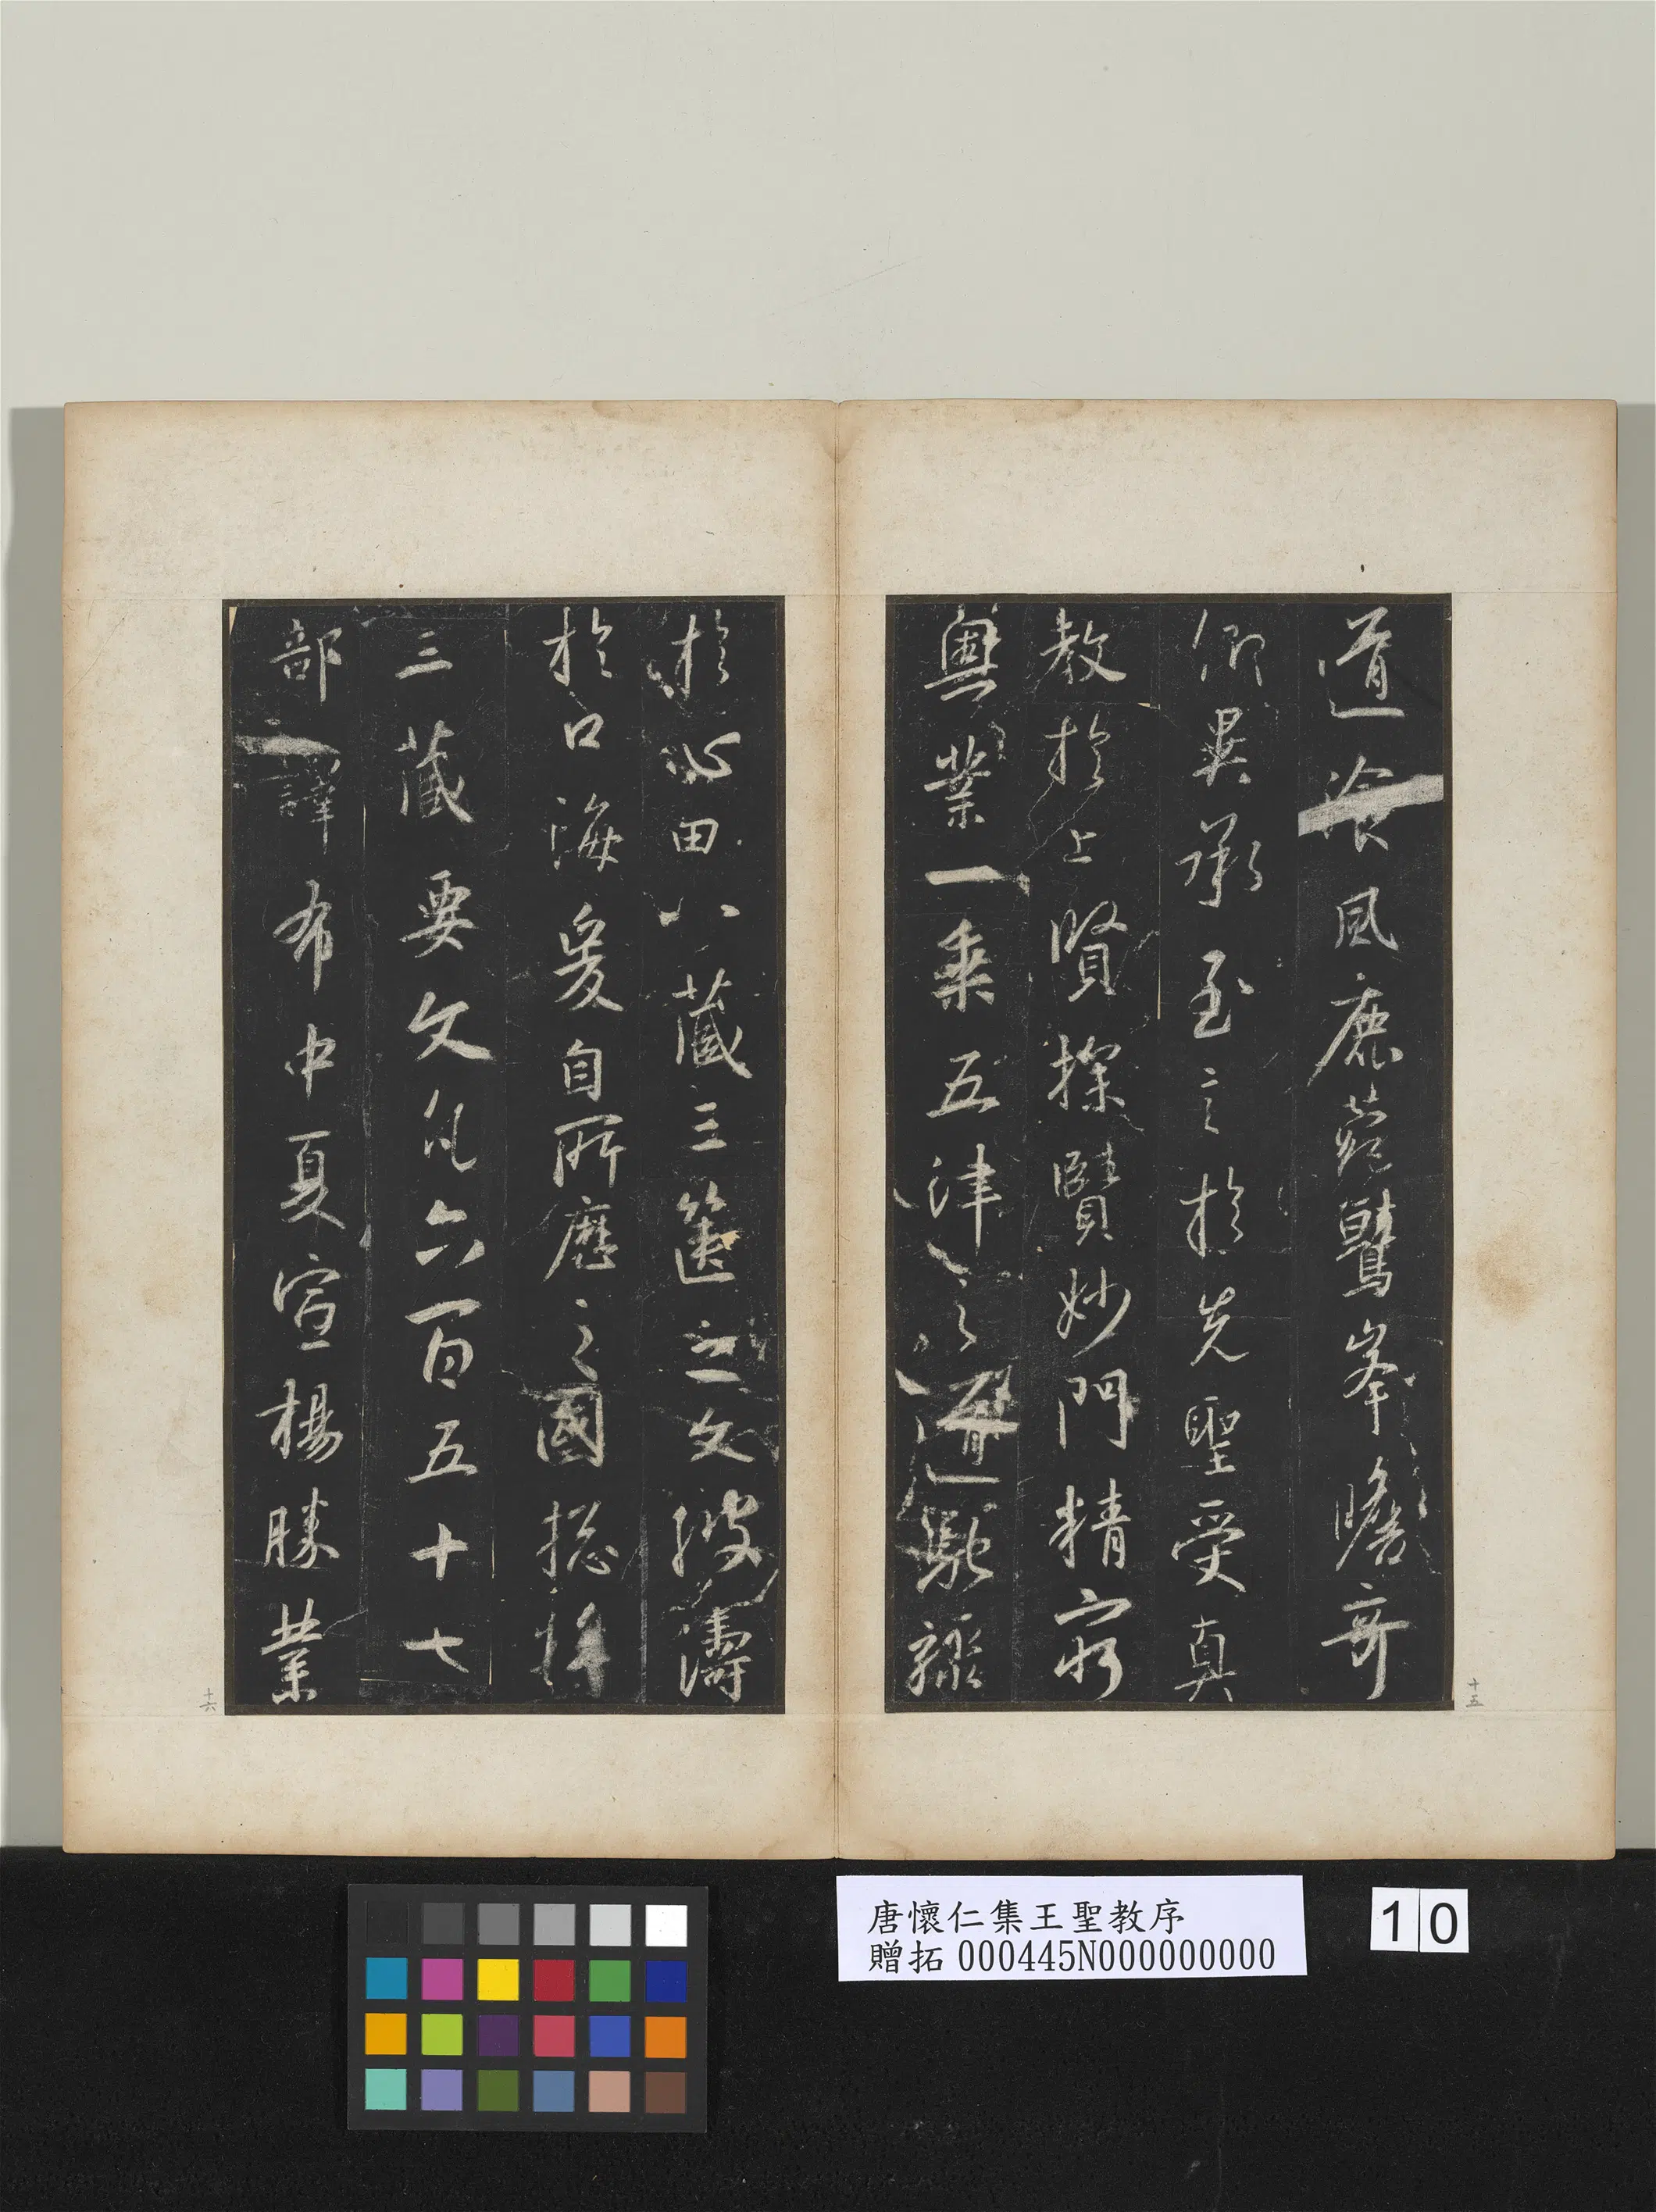 道飡風鹿菀鷲峯瞻奇
仰異承至言於先聖受真
教於上賢探賾妙門精窮
奧業一乘五律之道馳驟
於心田八藏三篋之文波濤
於口海爰自所歷之國揔將
三藏要文凡六百五十七
部譯布中夏宣楊勝業
十五
十六
唐懷仁集王聖教序
贈拓 000445N000000000
10